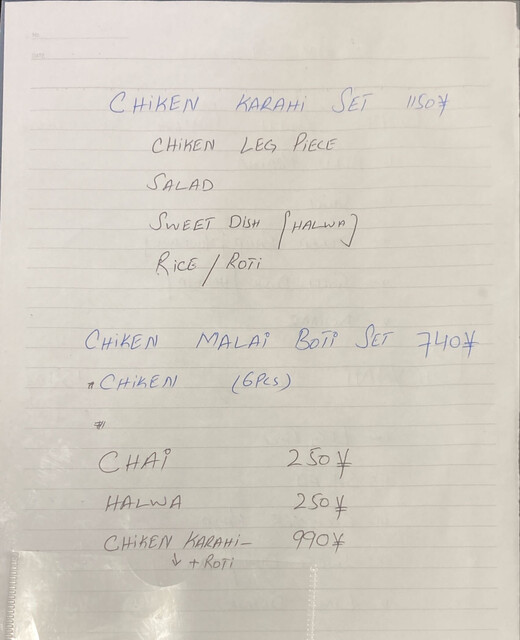 CHIKEN KARAHI SET 1150¥
CHIKEN LEG PIECE
SALAD
SWEET DISH [HALWA]
RICE / ROTI
CHIKEN MALAI BOTI SET 740¥
* CHIKEN (6PCS)
CHAI 250¥
HALWA 250¥
CHIKEN KARAHI– 990¥
↓ + ROTI